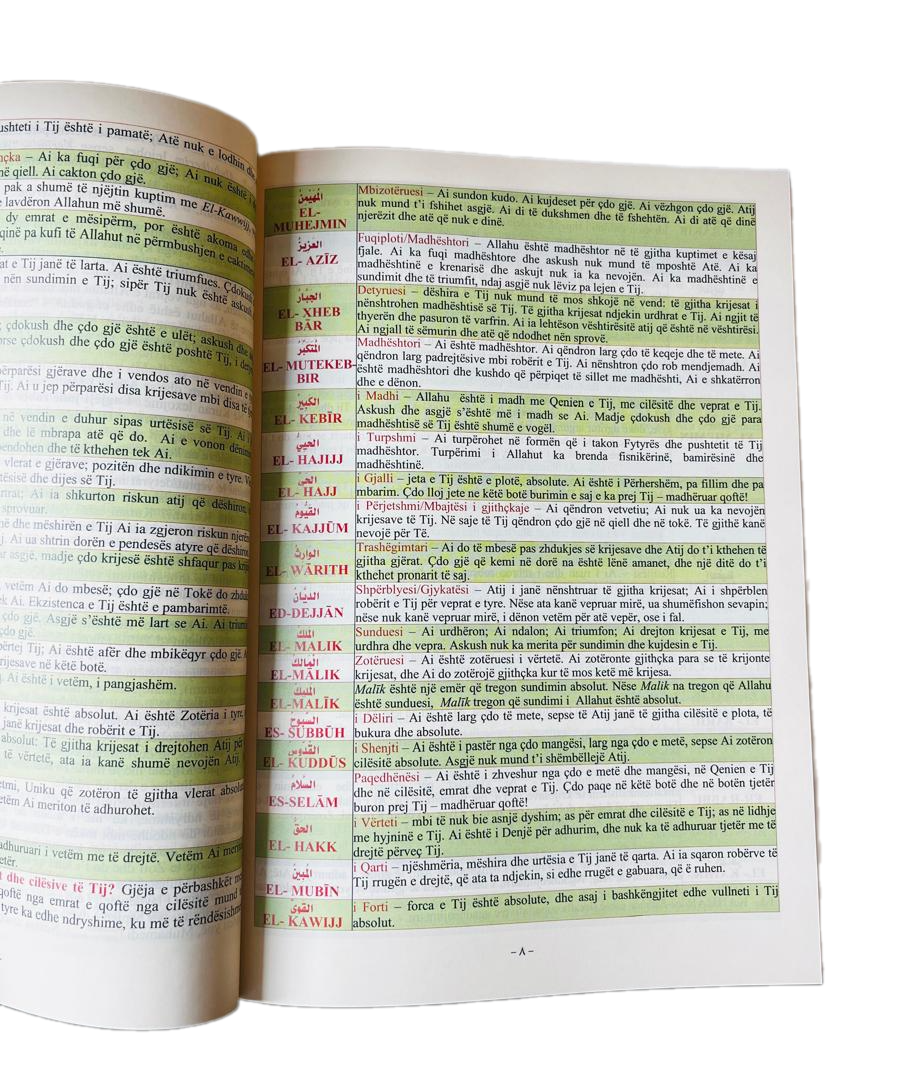 ushteti i Tij është i pamatë; Atë nuk e lodhin
– Ai ka fuqi për çdo gjë; Ai nuk është i
në qiell. Ai cakton çdo gjë.
pak a shumë të njëjtin kuptim me El-Kawwijj,
e lavdëron Allahun më shumë.
dy emrat e mësipërm, por është akoma
qinë pa kufi të Allahut në përmbushjen e
at e Tij janë të larta. Ai është triumfues. Çdokush
nën sundimin e Tij; sipër Tij nuk është askush
; çdokush dhe çdo gjë është e ulët; askush dhe
orse çdokush dhe çdo gjë është poshtë Tij, i
përparësi gjërave dhe i vendos ato në vendin e
Tij. Ai u jep përparësi disa krijesave mbi disa të
në vendin e duhur sipas urtësisë së Tij. Ai
dhe lë mbrapa atë që do. Ai e vonon
pendohen dhe të kthehen tek Ai.
vlerat e gjërave; pozitën dhe ndikimin e tyre.
tësisë dhe dijes së Tij.
Ai ia shkurton riskun atij që dëshiron,
sprovuar.
në dhe mëshirën e Tij Ai ia zgjeron riskun
j. Ai ua shtrin dorën e pendesës atyre që
ar asgjë, madje çdo krijesë është shfaqur pas
, vetëm Ai do mbesë; çdo gjë në Tokë do
ek Ai. Ekzistenca e Tij është e pambarimtë.
çdo gjë. Asgjë s'është më lart se Ai. Ai
çdo gjë.
Tij; Ai është afër dhe mbikëqyr çdo gjë.
rijesave në këtë botë.
j. Ai është i vetëm, i pangjashëm.
krijesat është absolut. Ai është Zotëria i tyre,
janë krijesat dhe robërit e Tij.
absolut: Të gjitha krijesat i drejtohen Atij për
të vërtetë, ata ia kanë shumë nevojën Atij.
Uniku që zotëron të gjitha vlerat
vetëm Ai meriton të adhurohet.
adhuruari i vetëm me të drejtë. Vetëm Ai
t dhe cilësive të Tij? Gjëja e përbashkët
qoftë nga emrat e qoftë nga cilësitë mund
tyre ka edhe ndryshime, ku më të
المُهَيْمِنُ
EL-
MUHEJMIN
Mbizotëruesi – Ai sundon kudo. Ai kujdeset për çdo gjë. Ai vëzhgon çdo gjë. Atij
nuk mund t'i fshihet asgjë. Ai di të dukshmen dhe të fshehtën. Ai di atë që dinë
njerëzit dhe atë që nuk e dinë.
العزيزُ
EL- AZĪZ
Fuqiploti/Madhështori – Allahu është madhështor në të gjitha kuptimet e kësaj
fjale. Ai ka fuqi madhështore dhe askush nuk mund të mposhtë Atë. Ai ka
madhështinë e krenarisë dhe askujt nuk ia ka nevojën. Ai ka madhështinë e
sundimit dhe të triumfit, ndaj asgjë nuk lëviz pa lejen e Tij.
الجبَّار
EL- XHEB
BĀR
Detyruesi – dëshira e Tij nuk mund të mos shkojë në vend: të gjitha krijesat i
nënshtrohen madhështisë së Tij. Të gjitha krijesat ndjekin urdhrat e Tij. Ai ngjit të
thyerën dhe pasuron të varfrin. Ai ia lehtëson vështirësitë atij që është në vështirësi.
Ai ngjall të sëmurin dhe atë që ndodhet nën sprovë.
المتكبّر
EL- MUTEKEB-
BIR
Madhështori – Ai është madhështor. Ai qëndron larg çdo të keqeje dhe të mete. Ai
qëndron larg padrejtësive mbi robërit e Tij. Ai nënshtron çdo rob mendjemadh. Ai
është madhështori dhe kushdo që përpiqet të sillet me madhështi, Ai e shkatërron
dhe e dënon.
الكبيرُ
EL- KEBĪR
i Madhi – Allahu është i madh me Qenien e Tij, me cilësitë dhe veprat e Tij.
Askush dhe asgjë s'është më i madh se Ai. Madje çdokush dhe çdo gjë para
madhështisë së Tij është shumë e vogël.
الحييُّ
EL- HAJIJJ
i Turpshmi – Ai turpërohet në formën që i takon Fytyrës dhe pushtetit të Tij
madhështor. Turpërimi i Allahut ka brenda fisnikërinë, bamirësinë dhe
madhështinë.
الحي
EL- HAJJ
i Gjalli – jeta e Tij është e plotë, absolute. Ai është i Përhershëm, pa fillim dhe pa
mbarim. Çdo lloj jete në këtë botë burimin e saj e ka prej Tij – madhëruar qoftë!
القيُّوم
EL- KAJJŪM
i Përjetshmi/Mbajtësi i gjithçkaje – Ai qëndron vetvetiu; Ai nuk ua ka nevojën
krijesave të Tij. Në saje të Tij qëndron çdo gjë në qiell dhe në tokë. Të gjithë kanë
nevojë për Të.
الوارثُ
EL- WĀRITH
Trashëgimtari – Ai do të mbesë pas zhdukjes së krijesave dhe Atij do t'i kthehen të
gjitha gjërat. Çdo gjë që kemi në dorë na është lënë amanet, dhe një ditë do t'i
kthehet pronarit të saj.
الديَّان
ED-DEJJĀN
Shpërblyesi/Gjykatësi – Atij i janë nënshtruar të gjitha krijesat; Ai i shpërblen
robërit e Tij për veprat e tyre. Nëse ata kanë vepruar mirë, ua shumëfishon sevapin;
nëse nuk kanë vepruar mirë, i dënon vetëm për atë vepër, ose i fal.
الملك
EL- MALIK
Sunduesi – Ai urdhëron; Ai ndalon; Ai triumfon; Ai drejton krijesat e Tij, me
urdhra dhe vepra. Askush nuk ka merita për sundimin dhe kujdesin e Tij.
المالك
EL-MĀLIK
Zotëruesi – Ai është zotëruesi i vërtetë. Ai zotëronte gjithçka para se të krijonte
krijesat, dhe Ai do zotërojë gjithçka kur të mos ketë më krijesa.
المليك
EL-MALĪK
Malīk është një emër që tregon sundimin absolut. Nëse Malik na tregon që Allahu
është sunduesi, Malīk tregon që sundimi i Allahut është absolut.
السبوح
ES- SUBBŪH
i Dëliri – Ai është larg çdo të mete, sepse të Atij janë të gjitha cilësitë e plota, të
bukura dhe absolute.
القدّوس
EL- KUDDŪS
i Shenjti – Ai është i pastër nga çdo mangësi, larg nga çdo e metë, sepse Ai zotëron
cilësitë absolute. Asgjë nuk mund t'i shëmbëllejë Atij.
السلامُ
ES-SELĀM
Paqedhënësi – Ai është i zhveshur nga çdo e metë dhe mangësi, në Qenien e Tij
dhe në cilësitë, emrat dhe veprat e Tij. Çdo paqe në këtë botë dhe në botën tjetër
buron prej Tij – madhëruar qoftë!
الحقُّ
EL- HAKK
i Vërteti – mbi të nuk bie asnjë dyshim; as për emrat dhe cilësitë e Tij; as në lidhje
me hyjninë e Tij. Ai është i Denjë për adhurim, dhe nuk ka të adhuruar tjetër me të
drejtë përveç Tij.
المبين
EL- MUBĪN
i Qarti – njëshmëria, mëshira dhe urtësia e Tij janë të qarta. Ai ia sqaron robërve të
Tij rrugën e drejtë, që ata ta ndjekin, si edhe rrugët e gabuara, që ë ruhen.
القويُّ
EL- KAWIJJ
i Forti – forca e Tij është absolute, dhe asaj i bashkëngjitet edhe vullneti i Tij
absolut.
–٨–